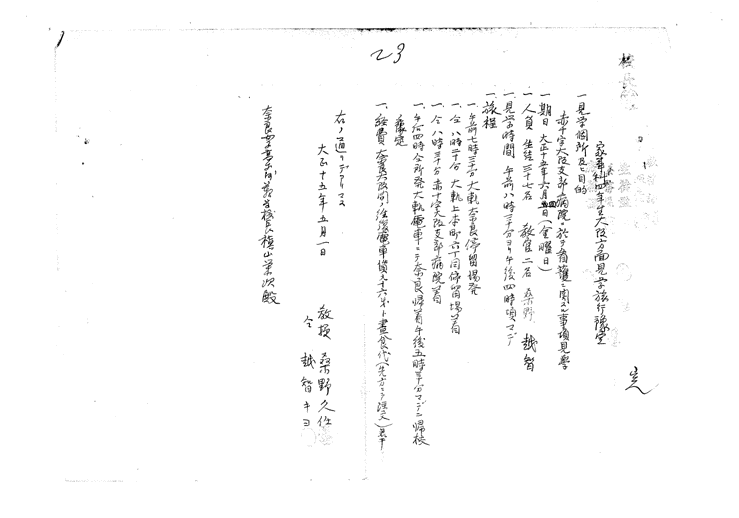 23
家事科四年生大阪方面見学旅行豫定
一、見学個所及ビ目的
赤十字大阪支部病院ニ於テ看護ニ関スル事項見学
一、期日 大正十五年六月 日(金曜日)
一、人員 生徒三十七名 教官二名 桑野 越智
一、見学時間 午前八時三十分ヨリ午後四時頃マデ
一、旅程
一、午前七時三十分大軌奈良停留場発
一、仝八時二十分大軌上本町六丁目停留場着
一、仝八時三十分赤十字大阪支部病院着
一、午后四時仝所発大軌電車ニテ奈良帰着午後五時三十分マデニ帰校
豫定
一、経費 奈良大阪間ノ往復電車賃 六十六銭ト昼食代(先方ニテ注文)
右ノ通リデアリマス
大正十五年五月一日
教授 桑野久任
仝 越智キヨ
奈良女子高等師範学校長槇山栄次殿